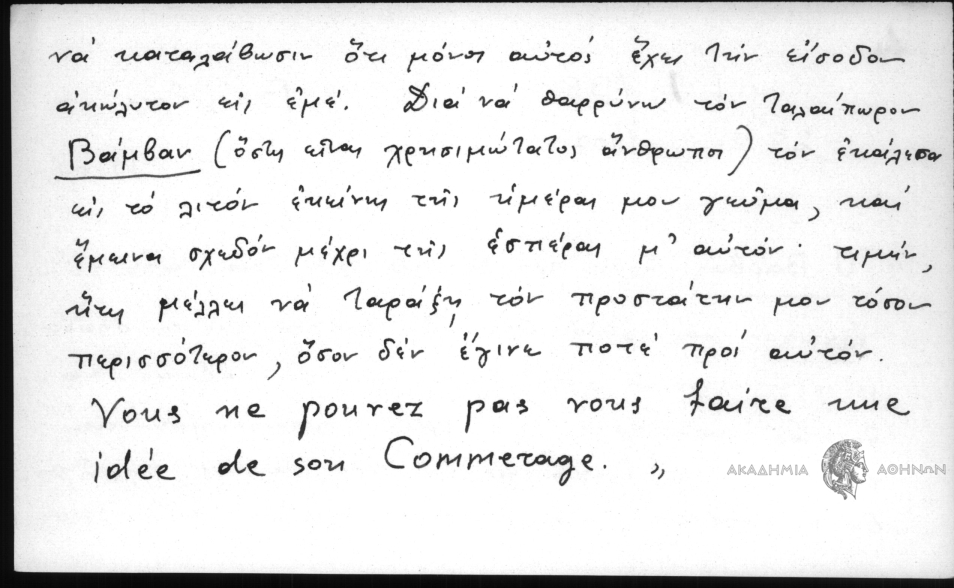 νά καταλάβωσιν ὅτι μόνος αὐτός ἔχει τήν εἴσοδον
ἀκώλυτον εἰς ἐμέ. Διά νά θαρρύνω τόν ταλαίπωρον
Βάμβαν (ὅστις εἶναι χρησιμώτατος ἄνθρωπος) τόν ἐκάλεσα
εἰς τό λιτόν ἐκείνης τῆς ἡμέρας μου γεῦμα, καί
ἔμεινα σχεδόν μέχρι τῆς ἑσπέρας μ' αὐτόν· τιμήν,
ἥτις μέλλει νά ταράξῃ τόν προστάτην μου τόσον
περισσότερον, ὅσον δέν ἔγινε ποτέ πρός αὐτόν.
Vous ne pouvez pas vous faire une
idée de son Commerage. „
ΑΚΑΔΗΜΙΑ ΑΘΗΝΩΝ